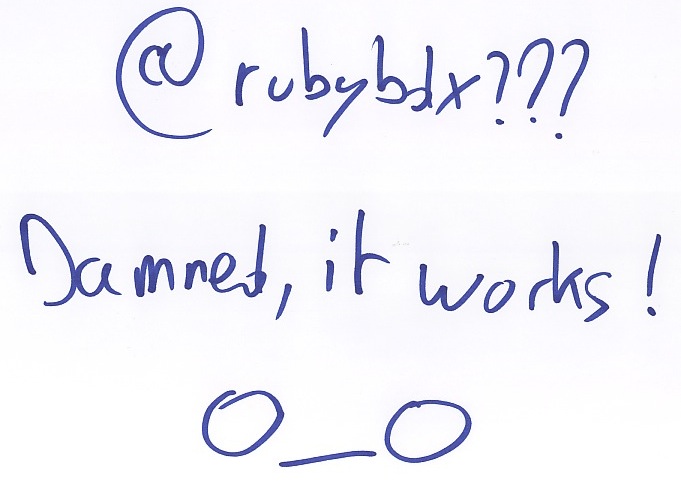 @rubybdx???
Damned, it works!
O_O